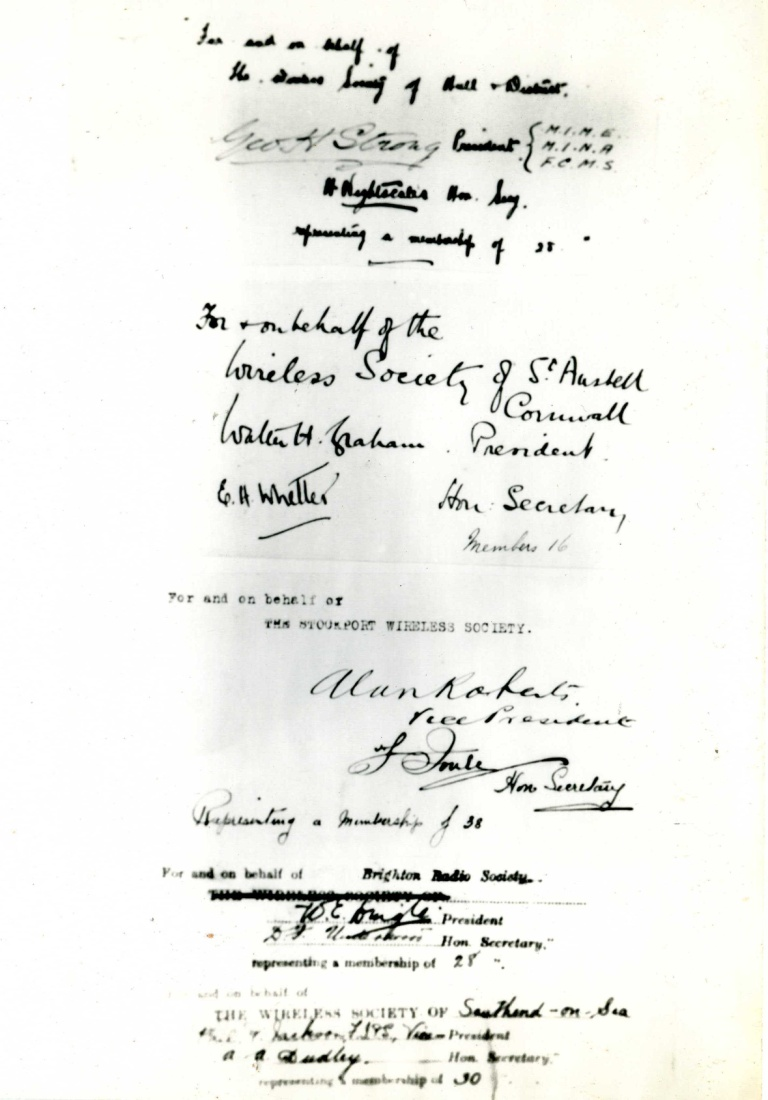 For and on behalf of
The Wireless Society of Hull & District.
Geo H Strong President { M.I.M.E.
M.I.N.A
F.C.M.S.
H Nightscales Hon. Secy.
representing a membership of 28
For & on behalf of the
Wireless Society of St Austell
Cornwall
Walter H. Graham. President.
E. H. Whetter Hon: Secretary
Members 16
For and on behalf of
THE STOCKPORT WIRELESS SOCIETY.
Alan Roberts.
Vice President
Hon Secretary
Representing a Membership of 38
For and on behalf of Brighton Radio Society.
THE WIRELESS SOCIETY OF
W. E. President
D. F. Hon. Secretary."
representing a membership of 28 ".
and on behalf of
THE WIRELESS SOCIETY OF Southend-on-Sea
Jackson, Vice-President
a a Dudley. Hon. Secretary."
representing a membership of 30